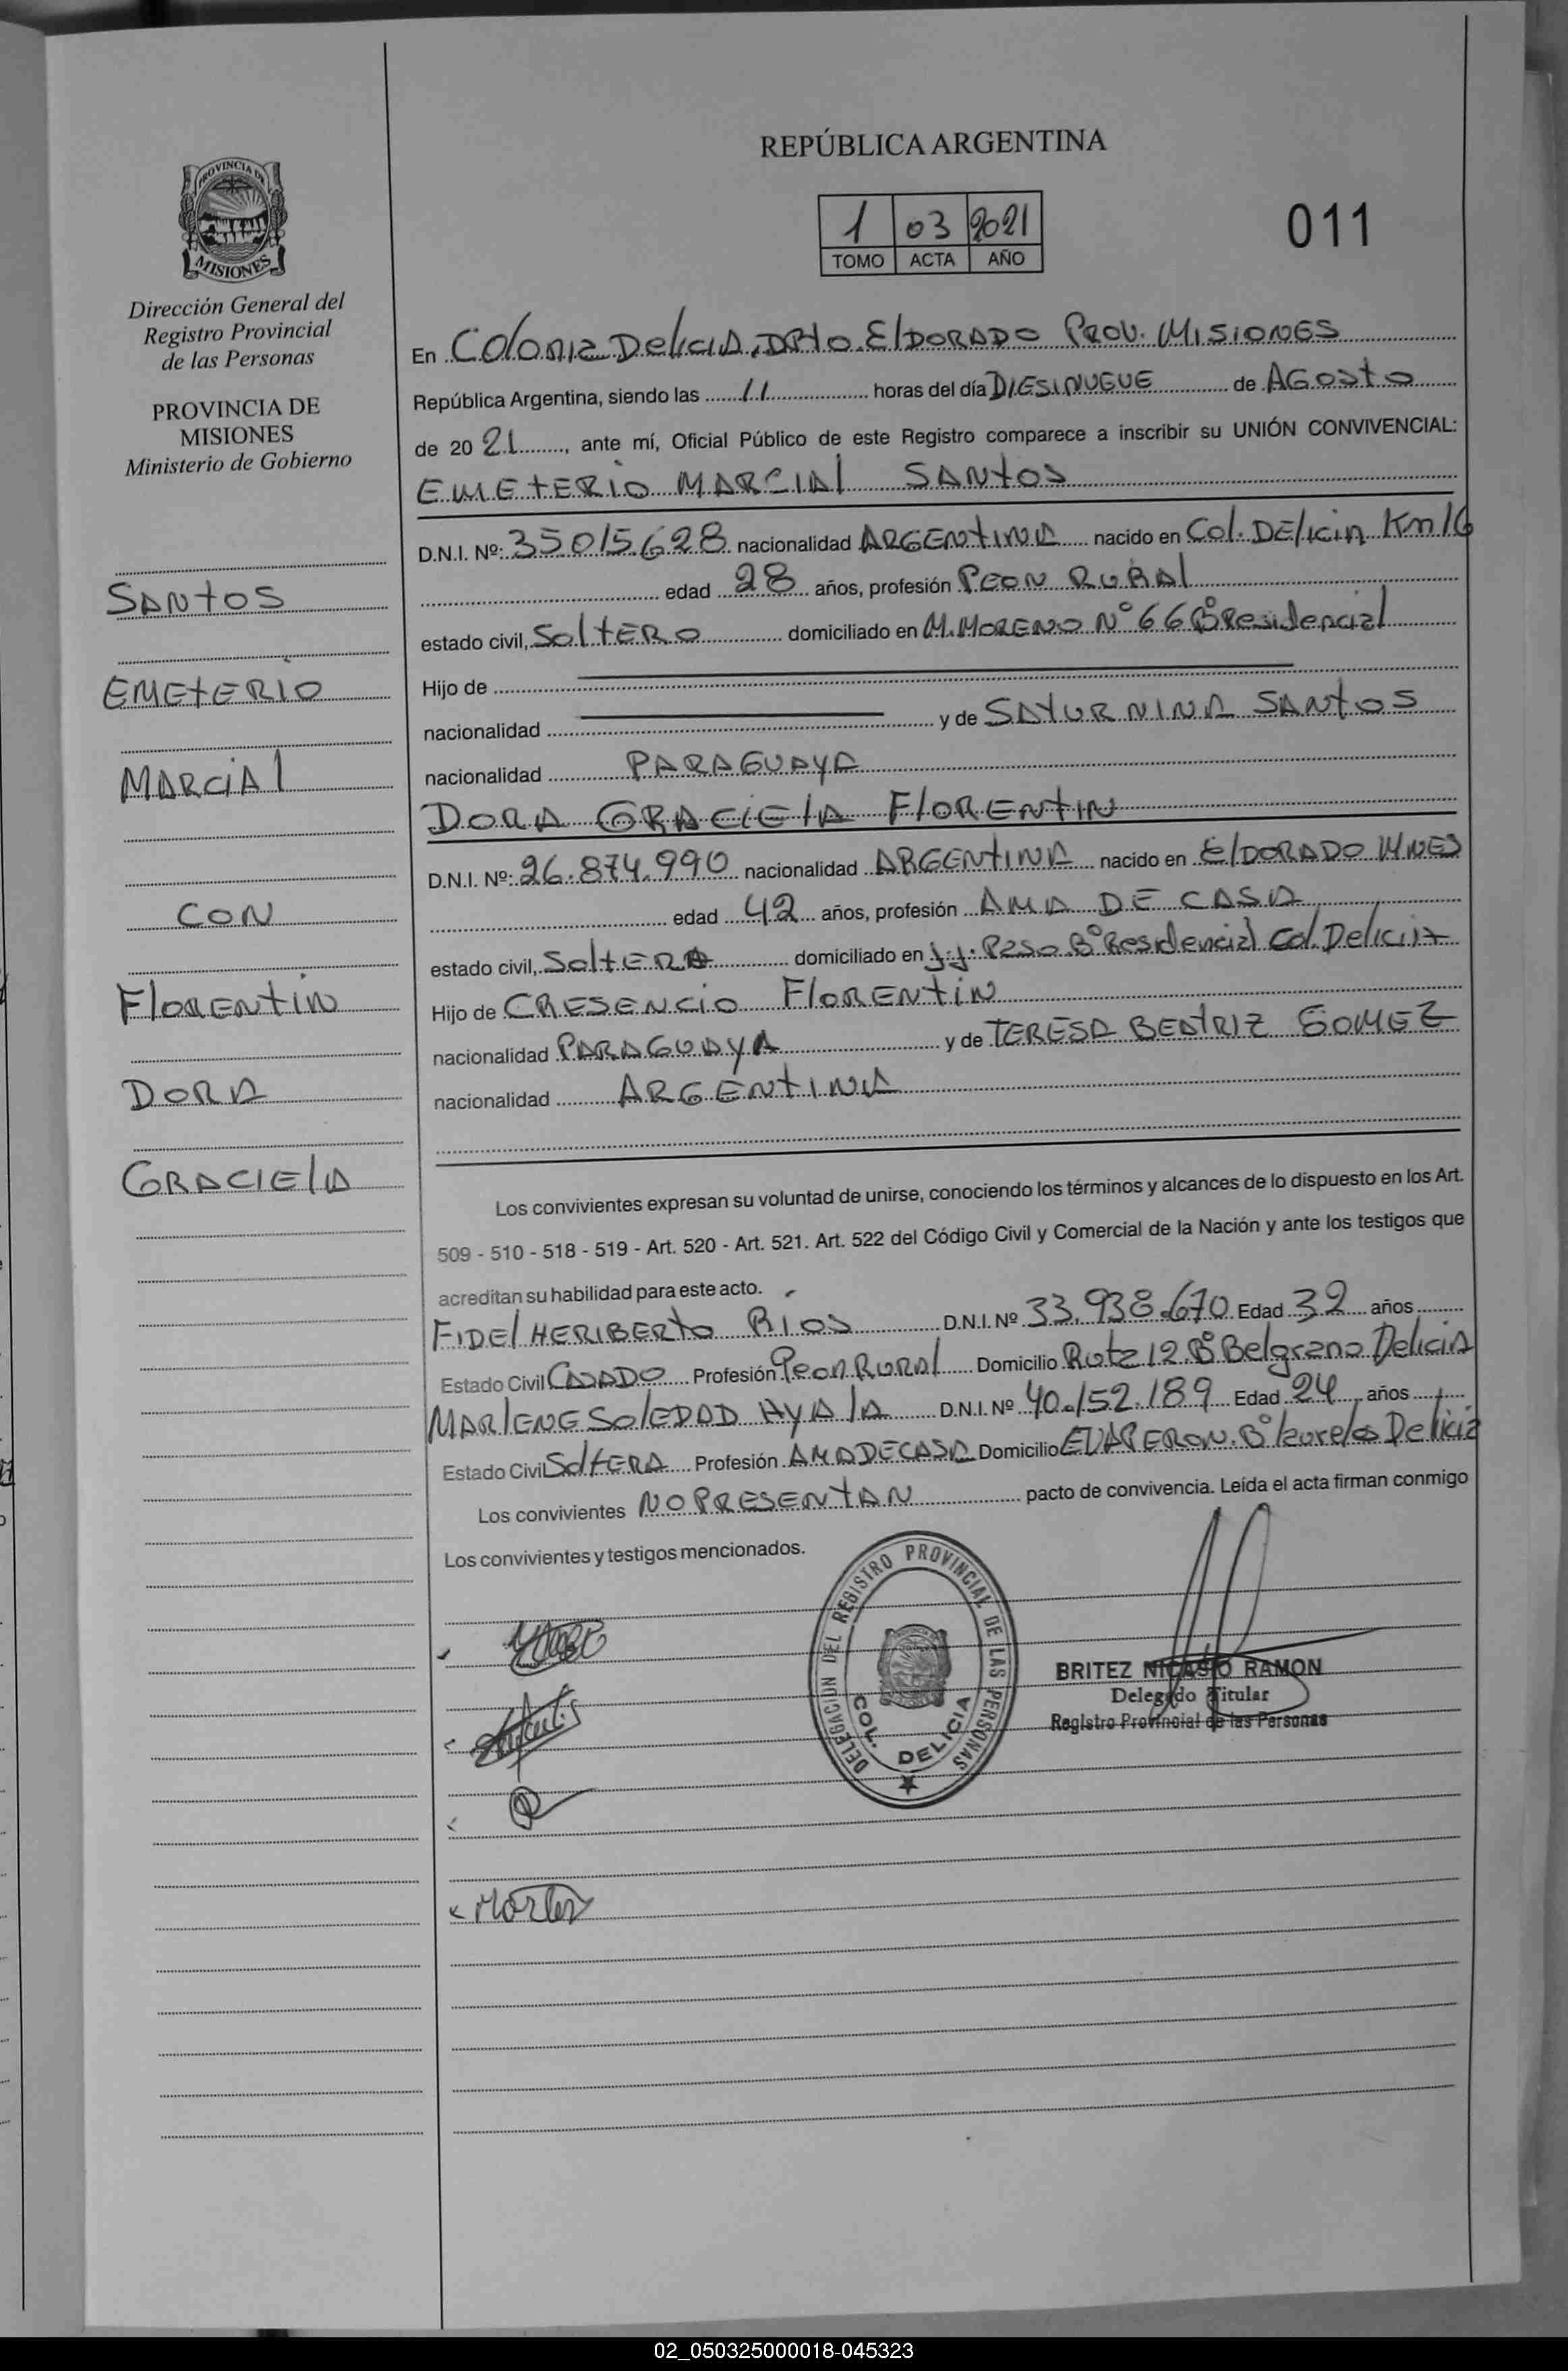 REPÚBLICA ARGENTINA
1 03 2021
TOMO ACTA AÑO
011
PROVINCIA DE
MISIONES
Dirección General del
Registro Provincial
de las Personas
PROVINCIA DE
MISIONES
Ministerio de Gobierno
SANtOS
EMEtERIO
MARCIAl
CON
FlORENtIN
DORA
GRACIElA
En Colonia DeliciA, DPtO. ElDORADO PROV. MISIONES
República Argentina, siendo las 11 horas del día DIESINUEUE de AGOStO
de 20 21, ante mí, Oficial Público de este Registro comparece a inscribir su UNIÓN CONVIVENCIAL:
EMEtERIO MARCIAl SANtOS
D.N.I. Nº: 35015.628 nacionalidad ARGENtINA nacido en Col. DElicia Km 16
edad 28 años, profesión PEON RURAl
estado civil, SoltERO domiciliado en M. MORENO Nº 66 Bº Residencial
Hijo de
nacionalidad y de SAtURNINA SANtOS
nacionalidad PARAGUAYA
DORA GRACIElA FlORENtIN
D.N.I. Nº: 26.874.990 nacionalidad ARGENtINA nacido en ElDORADO MNES
edad 42 años, profesión AMA DE CASA
estado civil, SoltERA domiciliado en J.J. Paso Bº Residencial Col. Delicia
Hijo de CRESENCIO FlORENtIN
nacionalidad PARAGUAYA y de TERESA BEAtRIZ GOMEZ
nacionalidad ARGENtINA
Los convivientes expresan su voluntad de unirse, conociendo los términos y alcances de lo dispuesto en los Art.
509 - 510 - 518 - 519 - Art. 520 - Art. 521. Art. 522 del Código Civil y Comercial de la Nación y ante los testigos que
acreditan su habilidad para este acto.
FIDEl HERIBERtO RIOS D.N.I. Nº 33.938.670 Edad 32 años
Estado Civil CASADO Profesión Peon RURAl Domicilio Ruta 12. Bº Belgrano Delicia
MARlENE SOlEDAD AYAlA D.N.I. Nº 40.152.189 Edad 24 años
Estado Civil SoltERA Profesión AMA DE CASA Domicilio EVA PERON. Bº laureles Delicia
Los convivientes NO PRESENtAN pacto de convivencia. Leída el acta firman conmigo
Los convivientes y testigos mencionados.
DELEGACION DEL REGISTRO PROVINCIAL DE LAS PERSONAS
COL. DELICIA
BRITEZ NICASIO RAMON
Delegado Titular
Registro Provincial de las Personas
02_050325000018-045323